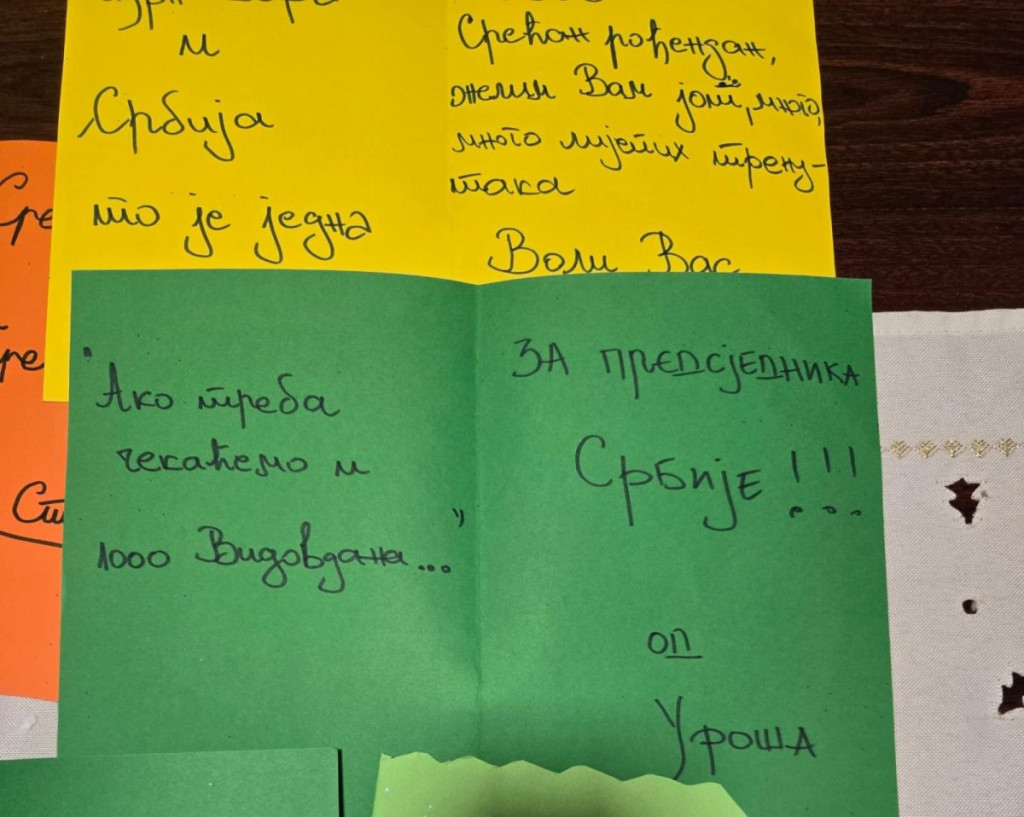 и
Србија
то је једна
Срећан рођендан,
желим Вам још, много,
много лијепих трену-
така
Воли Вас
Сре
"Ако треба
чекаћемо и
1000 Видовдана..."
ЗА ПРЕДСЈЕДНИКА
СРБИЈЕ!!!
ОД
УРОША